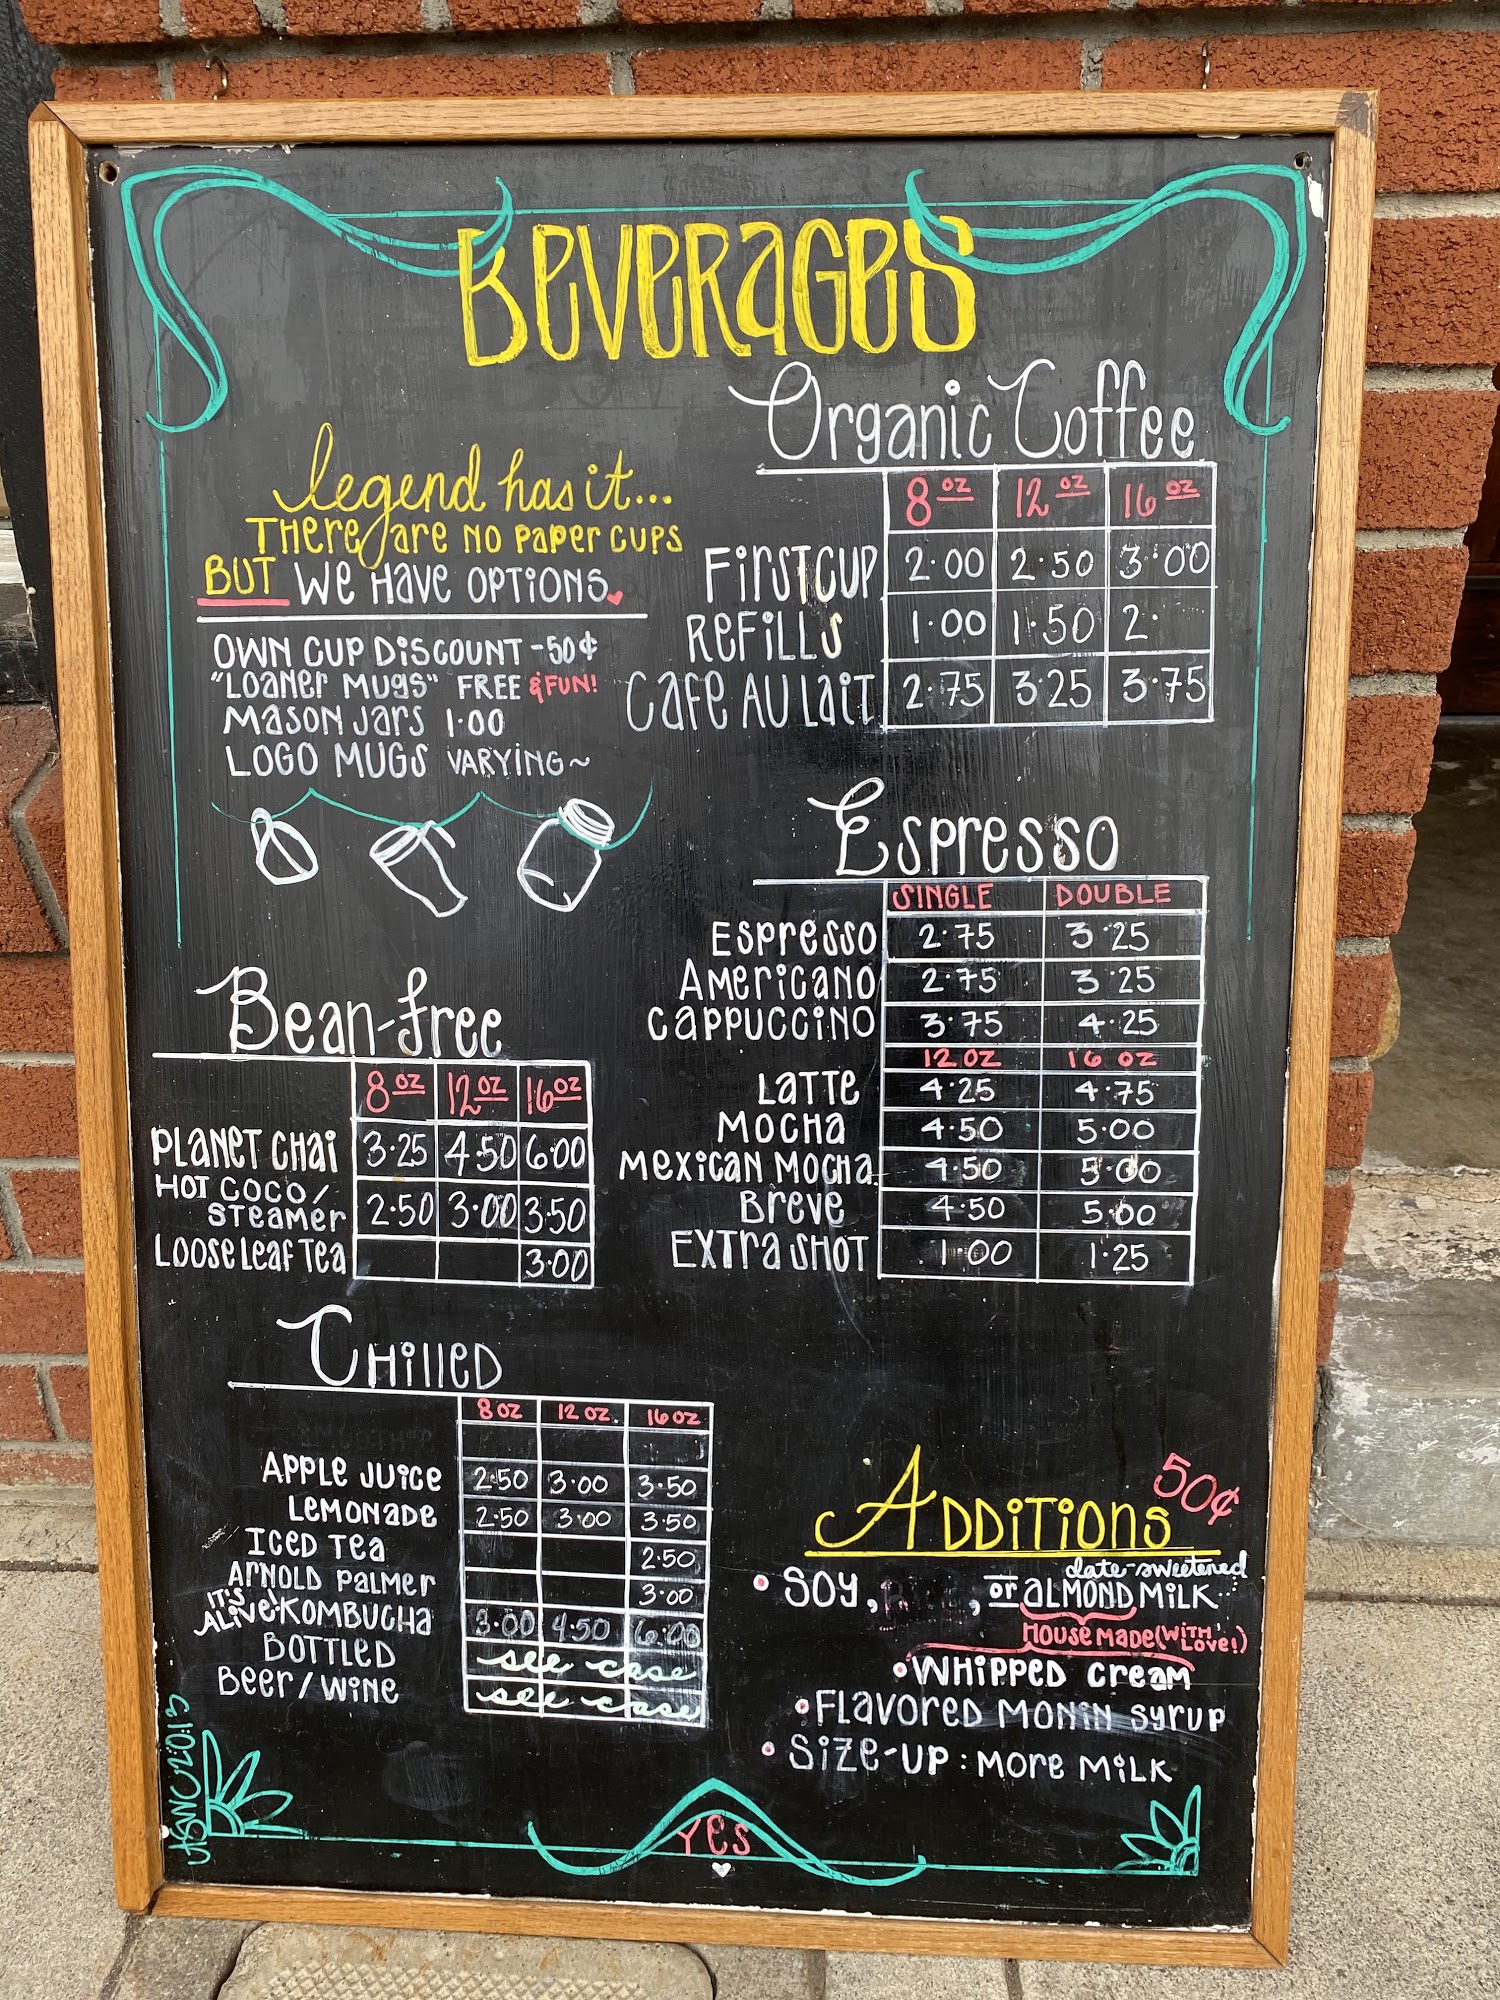 BEVERAGES
legend has it...
THERE ARE NO PAPER CUPS
BUT WE HAVE OPTIONS
OWN CUP DISCOUNT -50¢
"LOANER MUGS" FREE & FUN!
MASON JARS 1.00
LOGO MUGS VARYING~
Organic Coffee
8 OZ 12 OZ 16 OZ
FIRST CUP 2.00 2.50 3.00
REFILLS 1.00 1.50 2.
CAFE AU LAIT 2.75 3.25 3.75
Espresso
SINGLE DOUBLE
ESPRESSO 2.75 3.25
AMERICANO 2.75 3.25
CAPPUCCINO 3.75 4.25
12 OZ 16 OZ
LATTE 4.25 4.75
MOCHA 4.50 5.00
MEXICAN MOCHA 4.50 5.00
BREVE 4.50 5.00
EXTRA SHOT 1.00 1.25
Bean-free
8 OZ 12 OZ 16 OZ
PLANET CHAI 3.25 4.50 6.00
HOT COCO/
STEAMER 2.50 3.00 3.50
LOOSE LEAF TEA 3.00
CHILLED
8 OZ 12 OZ. 16 OZ
APPLE JUICE 2.50 3.00 3.50
LEMONADE 2.50 3.00 3.50
ICED TEA 2.50
ARNOLD PALMER 3.00
IT'S ALIVE! KOMBUCHA 3.00 4.50 6.00
BOTTLED see case
BEER/WINE see case
ADDITIONS 50¢
date-sweetened
• SOY, , or ALMOND MILK
HOUSE MADE (WITH LOVE!)
• WHIPPED CREAM
• FLAVORED MONIN SYRUP
• SIZE-UP: MORE MILK
YES
2013